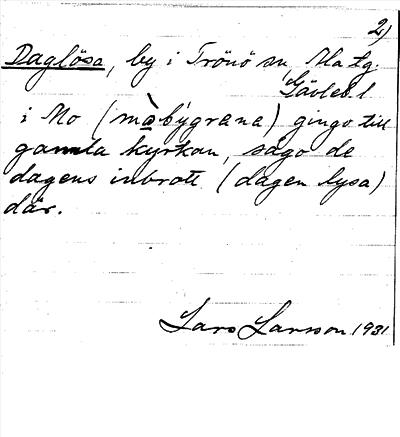 2)
Daglösa, by i Trönö sn Ala tg.
Gävleb. l
i Mo (mà̱býgrana) gingo till
gamla kyrkan, sågo de
dagens inbrott (dagen lysa)
där.
Lars Larsson 1931